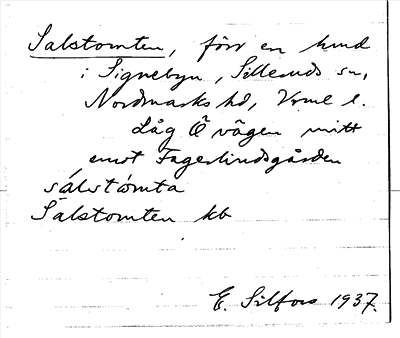 Salstomten, förr en hmd
i Signebyn, Silleruds sn,
Nordmarks hd, Vrml l.
Låg Ö vägen mitt
emot Fagerlindsgården
sálstòmta
Salstomten kb
E. Silfors 1937.